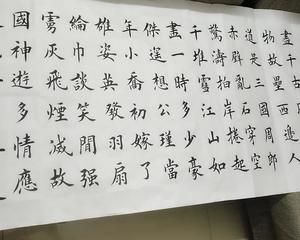 盡千古
物故壘西邊人
道是三國周郎
赤壁亂石穿空
驚濤拍岸捲起
千堆雪江山如
畫一時多少豪
傑遙想公瑾當
年小喬初嫁了
雄姿英發羽扇
綸巾談笑間强
虜灰飛煙滅故
國神遊多情應